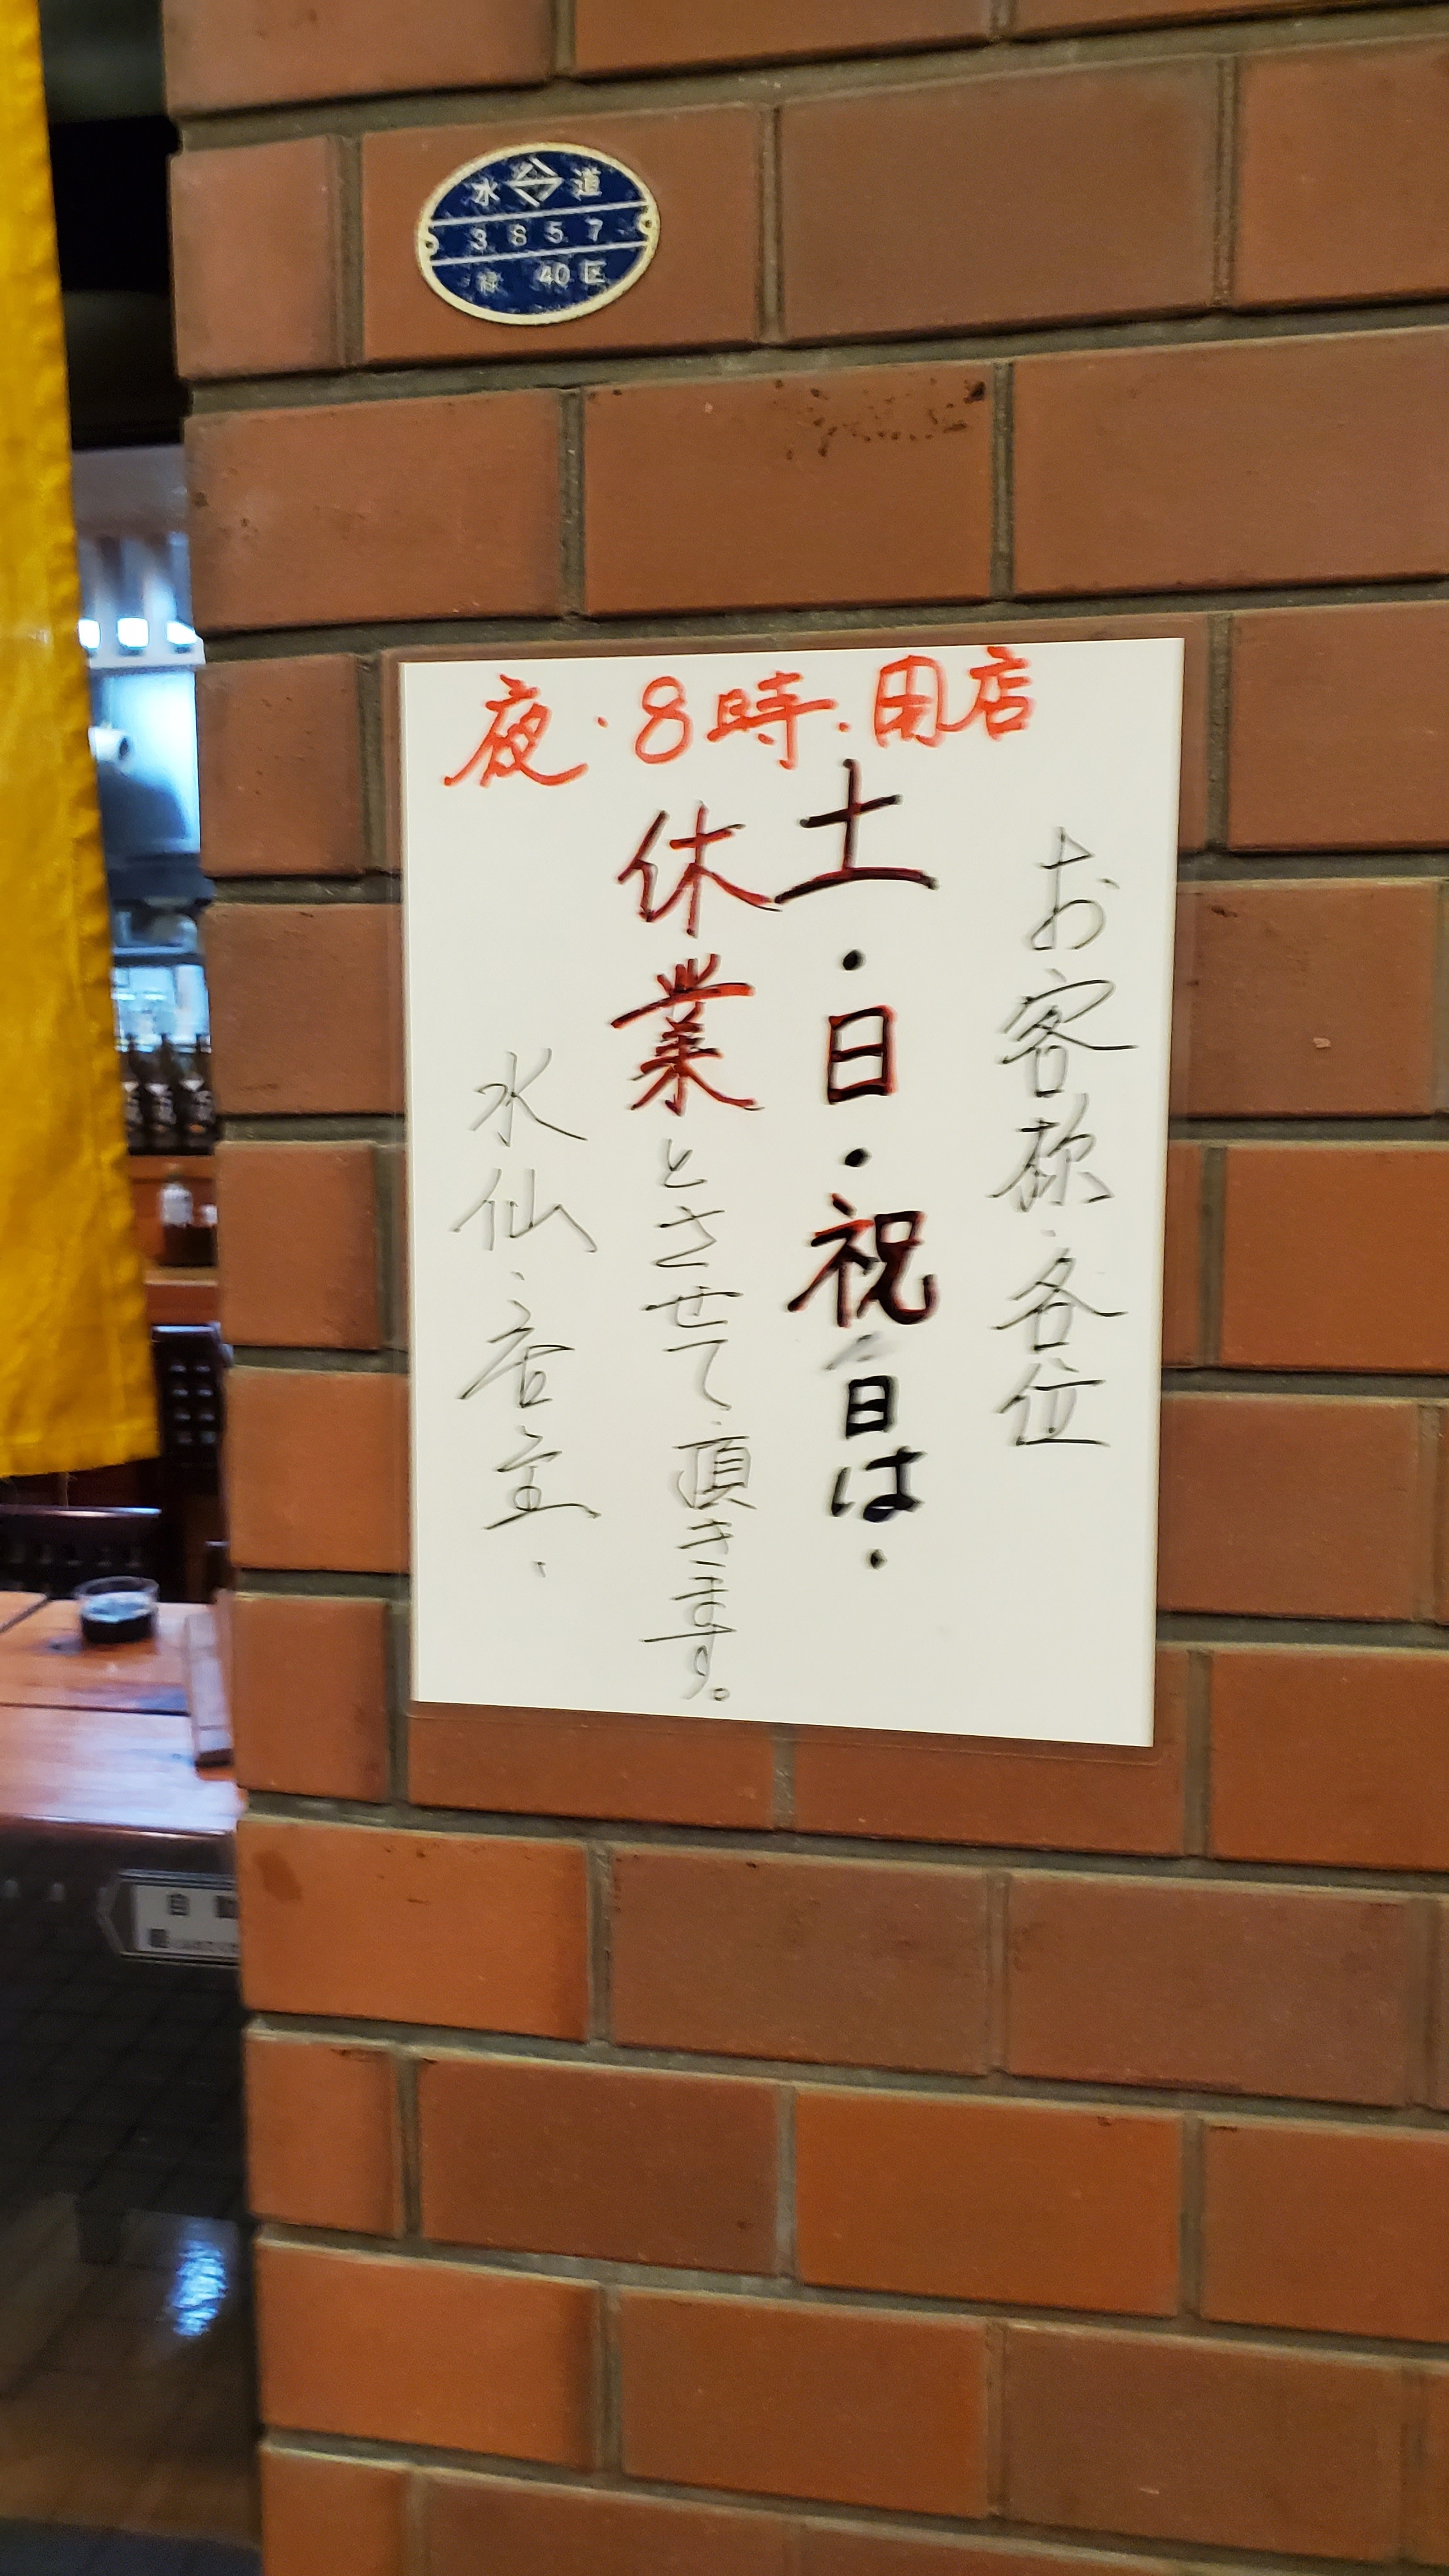 水 道
3857
40区
夜・8時.閉店
お客様・各位
土・日・祝日は・
休業とさせて頂きます。
水仙・店主.
自